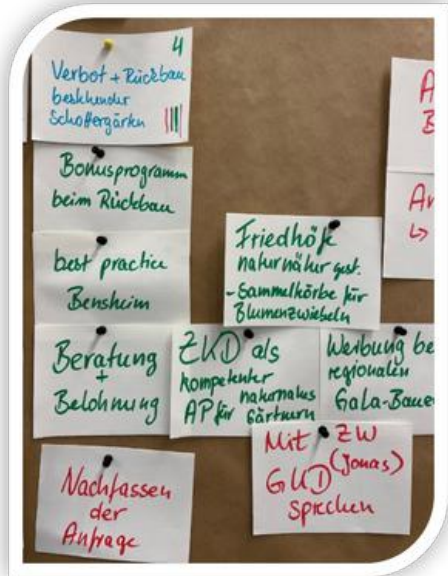 4
Verbot + Rückbau
bestehender
Schottergärten
Bonusprogramm
beim Rückbau
best practice
Bensheim
Beratung
+
Belohnung
Nachfassen
der
Anfrage
Friedhöfe
naturnäher gest.
- Sammelkörbe für
Blumenzwiebeln
ZKD als
kompetenter
AP für naturnahes
Gärtnern
Werbung be
regionalen
GaLa-Baue
Mit ZW
GKD (Jonas)
sprechen
A
B
↳